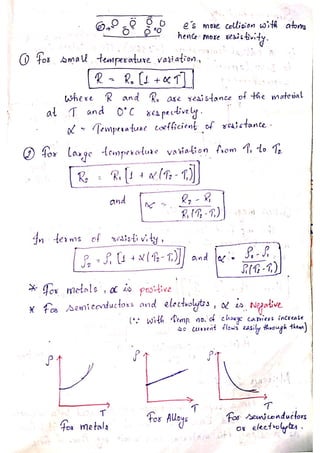 e's more collision with atoms
hence more resistivity.
① For small temperature variation,
R = R₀ [1 + αT]
where R and R₀ are resistance of the material
at T and 0°C respectively.
α - Temperature coefficient of resistance.
② For large temperature variation from T₁ to T₂
R₂ = R₁ [1 + α(T₂ - T₁)]
and α = R₂ - R₁ / R₁(T₂-T₁)
In terms of resistivity,
ρ₂ = ρ₁ [1 + α(T₂ - T₁)] and α = ρ₂-ρ₁ / ρ₁(T₂-T₁)
* For metals, α is positive
* For semiconductors and electrolytes, α is Negative
(∵ with Temp no. of charge carriers increase
so current flows easily through them)
ρ ρ ρ
T T T
For metals For Alloys For semiconductors
or electrolytes.